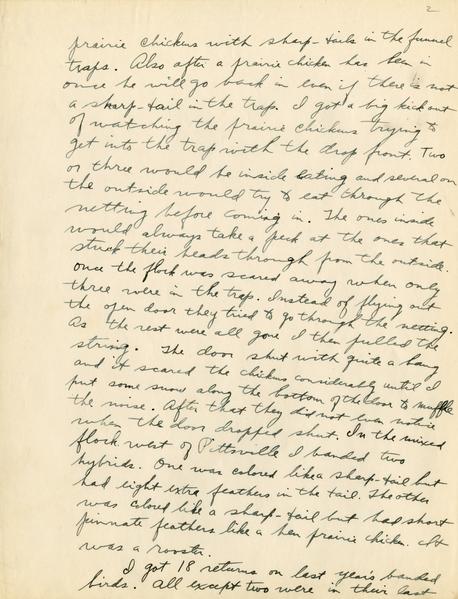 2
prairie chickens with sharp-tails in the funnel
traps. Also after a prairie chicken has been in
once he will go back in even if there is not
a sharp-tail in the trap. I got a big kick out
of watching the prairie chickens trying to
get into the trap with the drop front. Two
or three would be inside eating and several on
the outside would try to eat through the
netting before coming in. The ones inside
would always take a peck at the ones that
stuck their heads through from the outside.
Once the flock was scared away when only
three were in the trap. Instead of flying out
the open door they tried to go through the netting.
As the rest were all gone I then pulled the
string. The door shut with quite a bang
and it scared the chickens considerably until I
put some snow along the bottom of the door to muffle
the noise. After that they did not even notice
when the door dropped shut. In the mixed
flock west of Pittsville I banded two
hybrids. One was colored like a sharp-tail but
had eight extra feathers in the tail. The other
was colored like a sharp-tail but had short
pinnate feathers like a hen prairie chicken. It
was a rooster.
I got 18 returns on last year's banded
birds. All except two were in their last